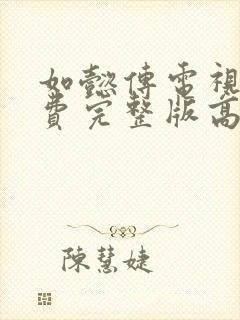 如懿傳電視
費完整版高
陳慧婕